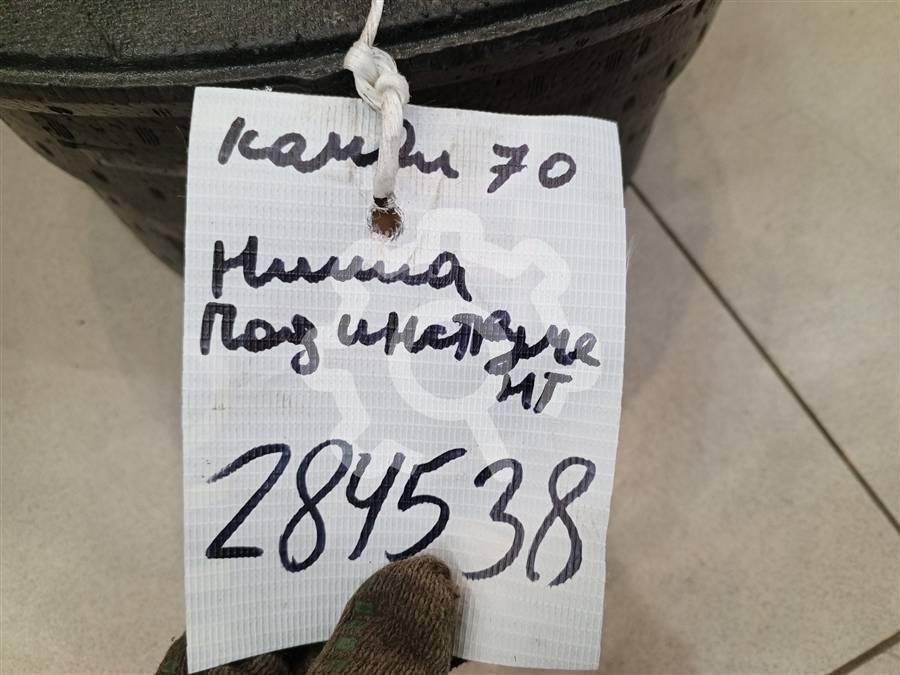 камри 70
Ниша
Под инструме
нт
284538